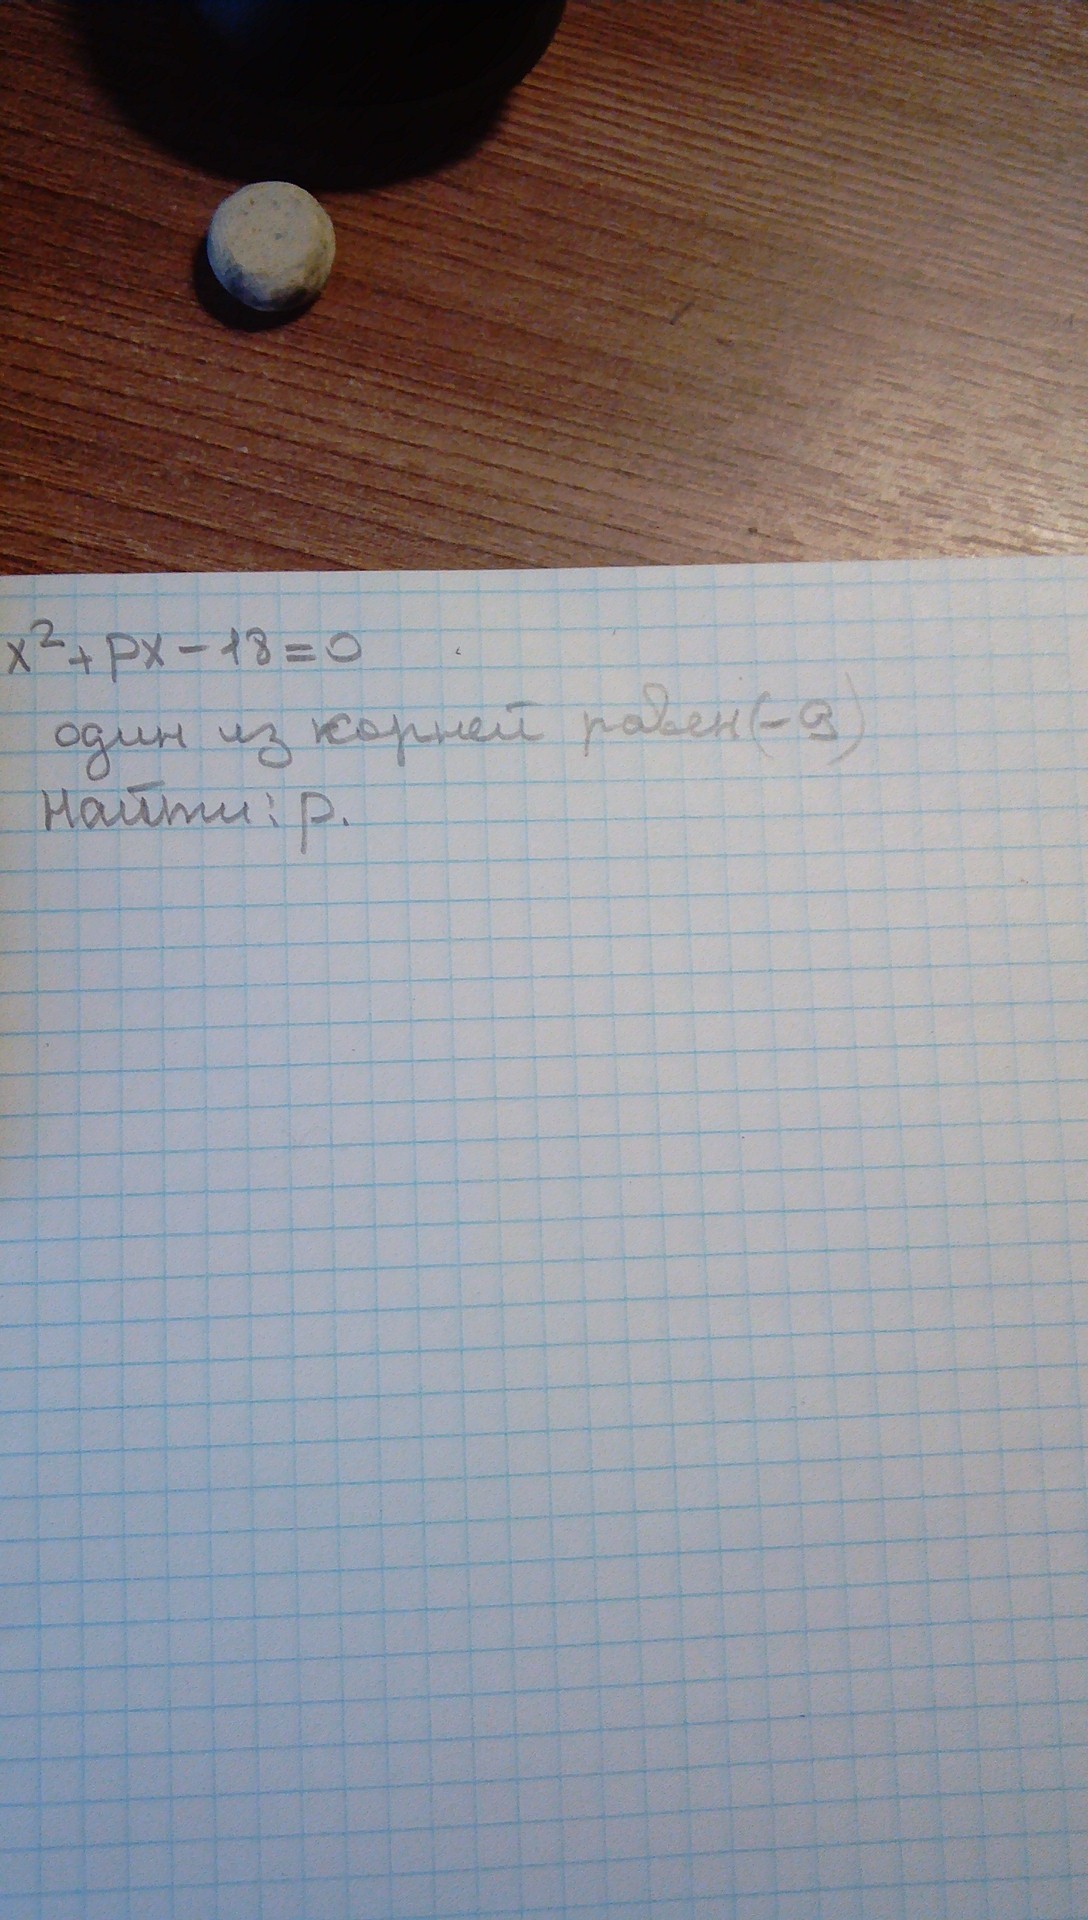 x²+px-18=0
один из корней равен(-9)
Найти: p.